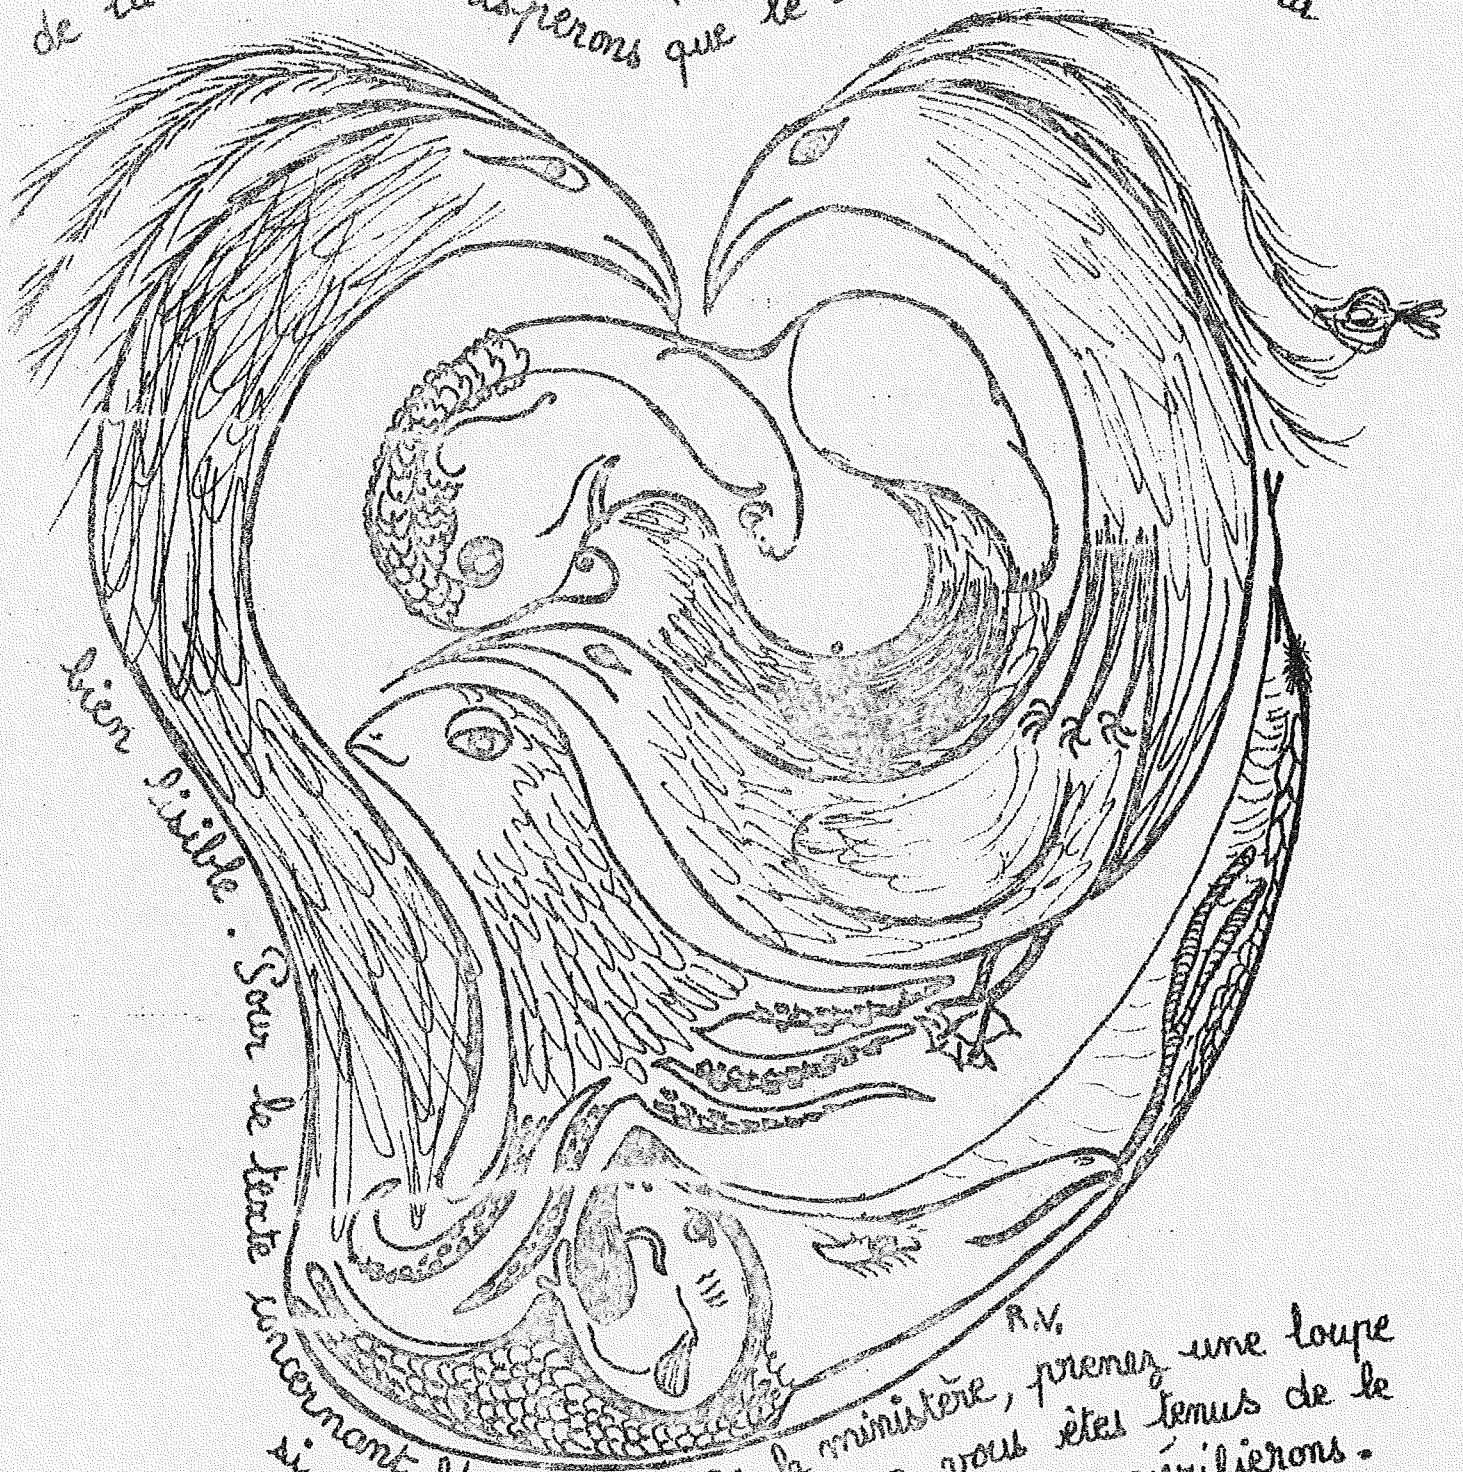 de la
espérons que le
la
bien lisible. Pour le texte concernant
R.V.
la ministère, prenez une loupe
vous êtes tenus de le
si